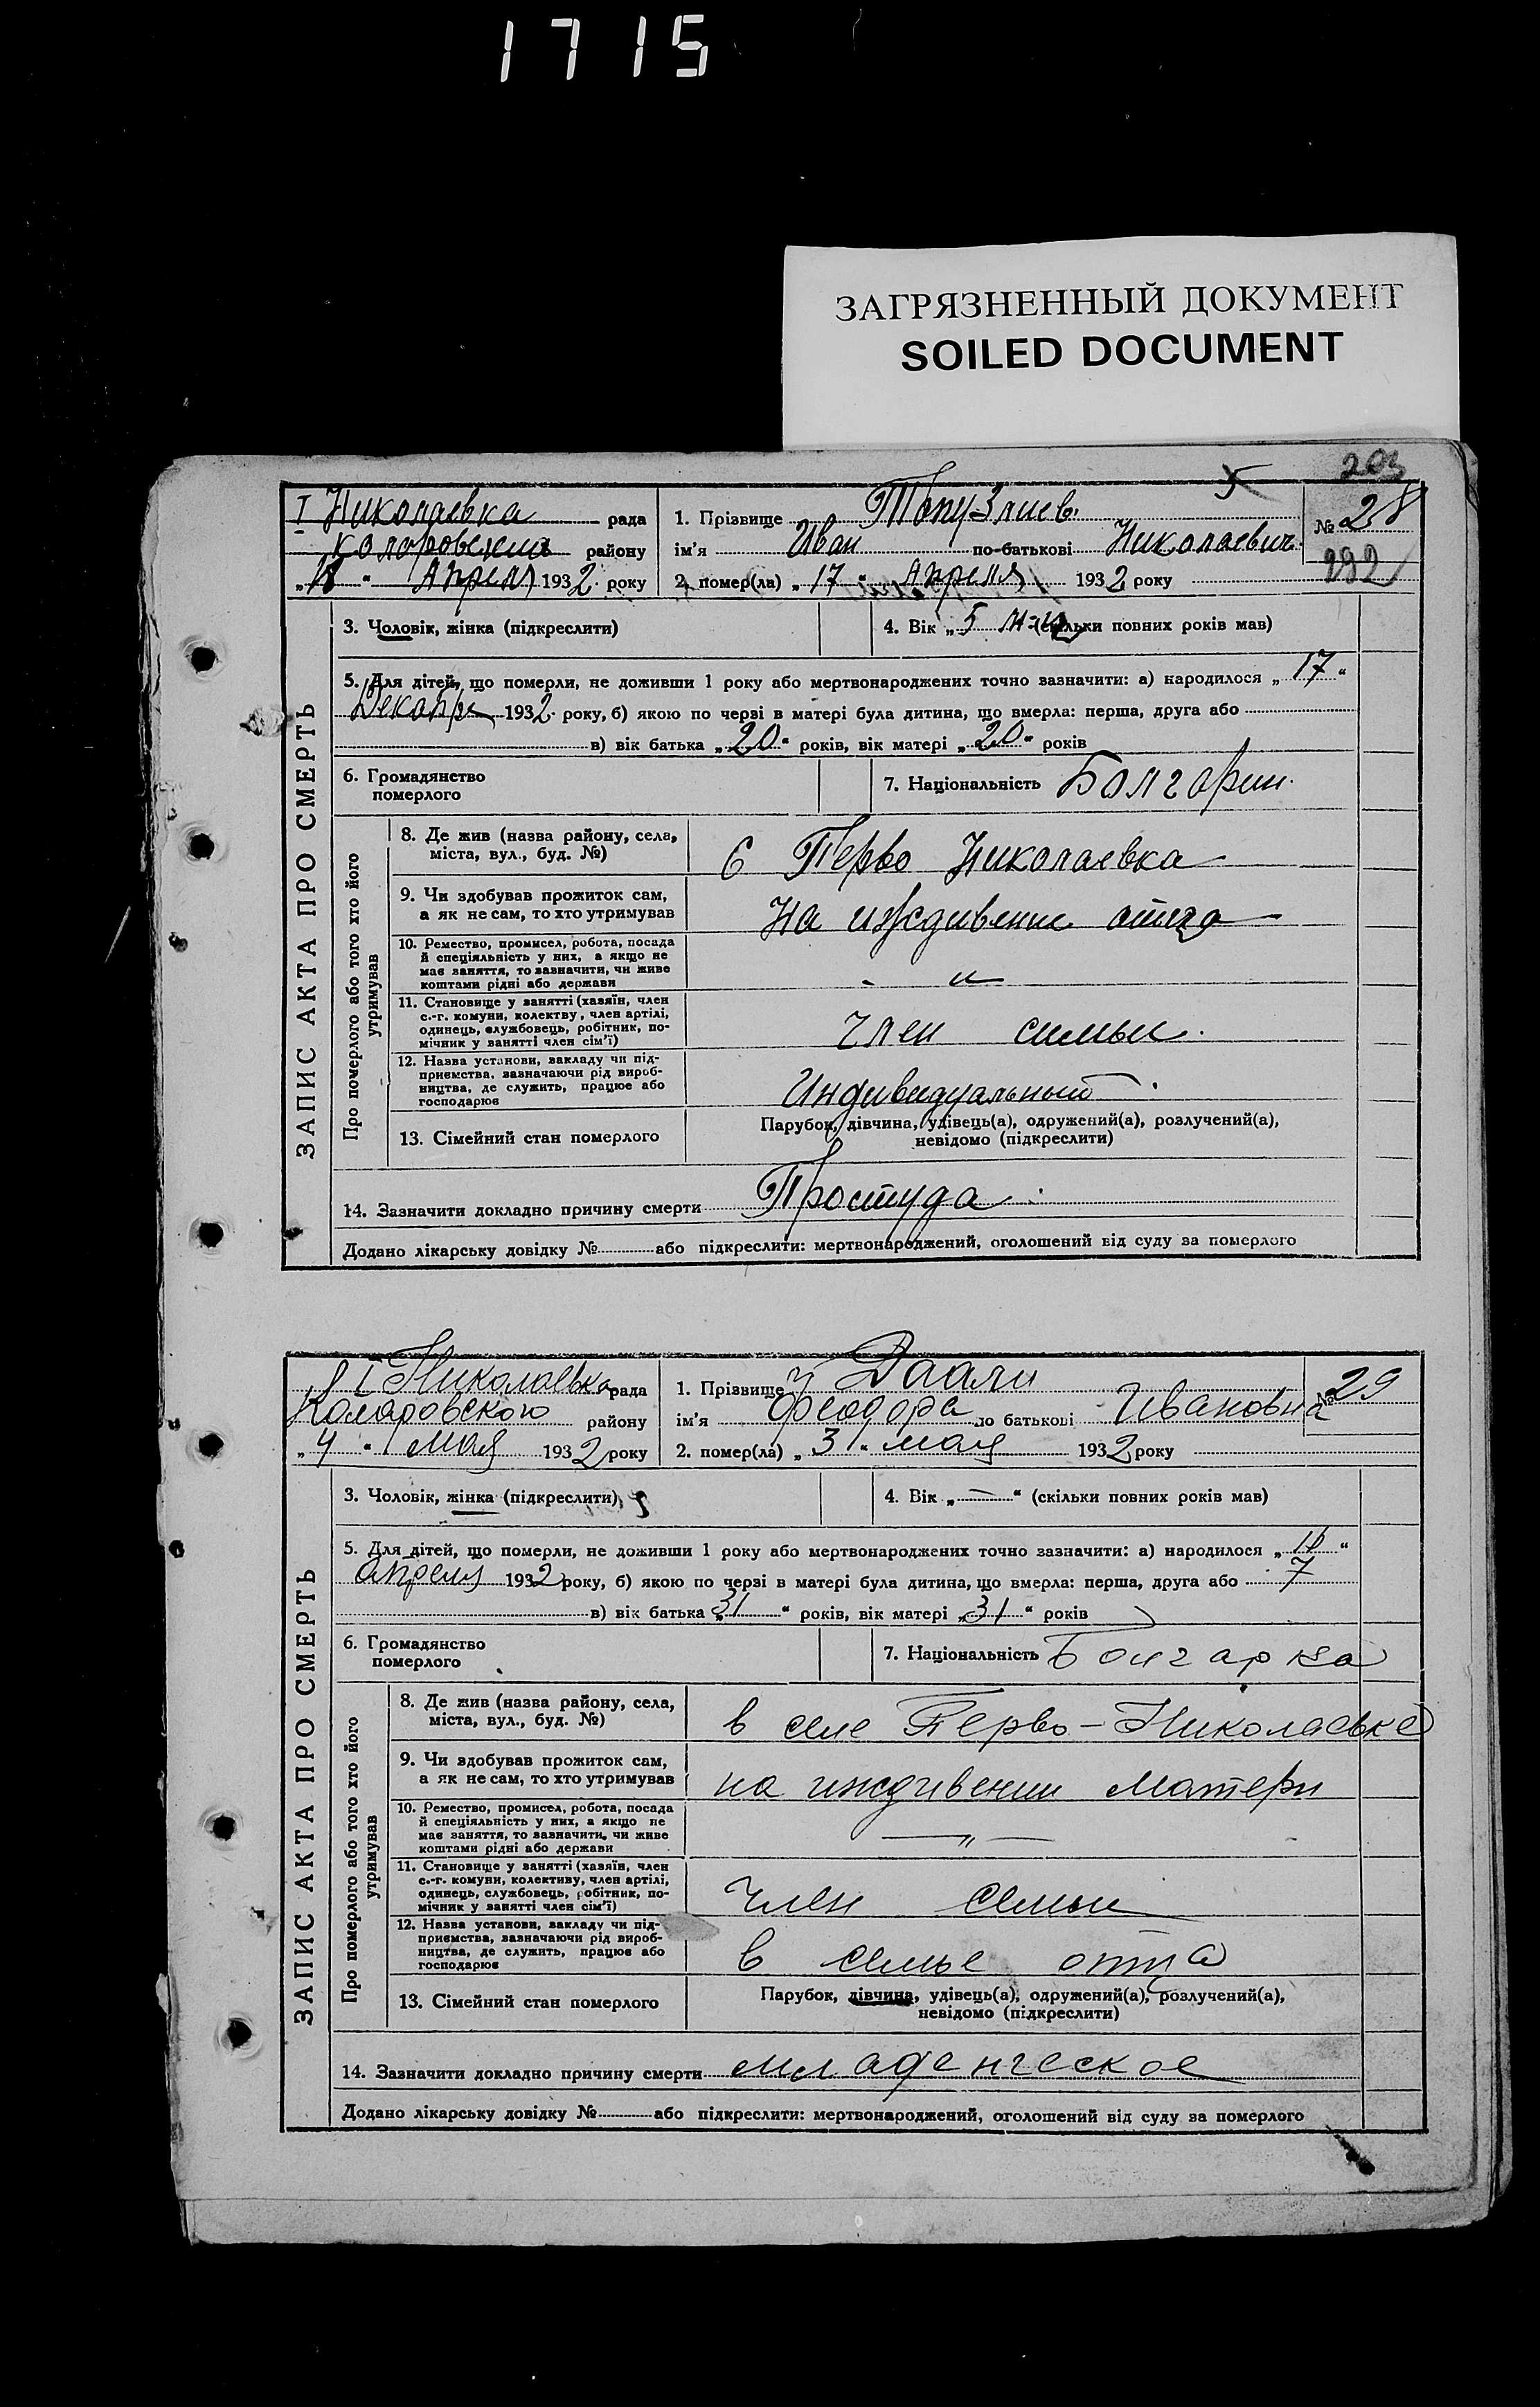 1715
ЗАГРЯЗНЕННЫЙ ДОКУМЕНТ
SOILED DOCUMENT
203
I Николаевка рада
1. Прізвище Топузлиев
№ 28
району
ім'я Иван по-батькові Николаевич
292
„18“ Апреля 1932 року
2. помер(ла) „17“ Апреля 1932 року
ЗАПИС АКТА ПРО СМЕРТЬ
3. Чоловік, жінка (підкреслити)
4. Вік „5 (скільки повних років мав)
5. Для дітей, що померли, не доживши 1 року або мертвонароджених точно зазначити: а) народилося „17“
1932 року, б) якою по черзі в матері була дитина, що вмерла: перша, друга або
в) вік батька „20“ років, вік матері „20“ років
6. Громадянство
померлого
7. Національність Болгарин
Про померлого або того хто його
утримував
8. Де жив (назва району, села,
міста, вул., буд. №)
С Перво Николаевка
9. Чи здобував прожиток сам,
а як не сам, то хто утримував
На иждивении отца
10. Ремество, промисел, робота, посада
й спеціяльність у них, а якщо не
має заняття, то зазначити, чи живе
коштами рідні або держави
- „ -
11. Становище у занятті (хазяїн, член
с.-г. комуни, колективу, член артілі,
одинець, службовець, робітник, по-
мічник у занятті член сім'ї)
член семьи
12. Назва установи, закладу чи під-
приємства, зазначаючи рід вироб-
ництва, де служить, працює або
господарює
Индивидуальный
13. Сімейний стан померлого
Парубок, дівчина, удівець(а), одружений(а), розлучений(а),
невідомо (підкреслити)
14. Зазначити докладно причину смерти Простуда
Додано лікарську довідку № або підкреслити: мертвонароджений, оголошений від суду за померлого
I Николаевка рада
1. Прізвище Даали
№ 29
Коларовского району
ім'я Феодора по батькові Ивановна
„4“ мая 1932 року
2. помер(ла) „3“ мая 1932 року
ЗАПИС АКТА ПРО СМЕРТЬ
3. Чоловік, жінка (підкреслити)
4. Вік „—“ (скільки повних років мав)
5. Для дітей, що померли, не доживши 1 року або мертвонароджених точно зазначити: а) народилося „16“
апреля 1932 року, б) якою по черзі в матері була дитина, що вмерла: перша, друга або 7
в) вік батька „31“ років, вік матері „31“ років
6. Громадянство
померлого
7. Національність Болгарка
Про померлого або того хто його
утримував
8. Де жив (назва району, села,
міста, вул., буд. №)
в селе Перво-Николаевке
9. Чи здобував прожиток сам,
а як не сам, то хто утримував
на иждивении матери
10. Ремество, промисел, робота, посада
й спеціяльність у них, а якщо не
має заняття, то зазначити, чи живе
коштами рідні або держави
— „ —
11. Становище у занятті (хазяїн, член
с.-г. комуни, колективу, член артілі,
одинець, службовець, робітник, по-
мічник у занятті член сім'ї)
член семьи
12. Назва установи, закладу чи під-
приємства, зазначаючи рід вироб-
ництва, де служить, працює або
господарює
в семье отца
13. Сімейний стан померлого
Парубок, дівчина, удівець(а), одружений(а), розлучений(а),
невідомо (підкреслити)
14. Зазначити докладно причину смерти младенческое
Додано лікарську довідку № або підкреслити: мертвонароджений, оголошений від суду за померлого